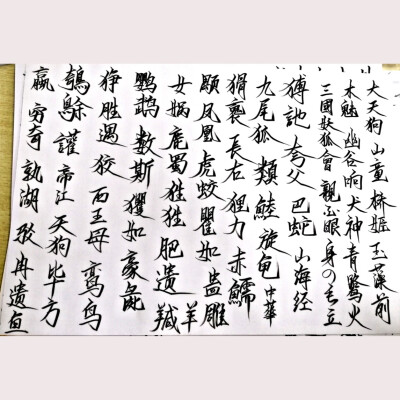 大天狗 山童 桥姬 玉藻前
木魅 幽谷响 犬神 青鹭火
三國妖狐會 親不眼 身の毛立
猼訑 夸父 巴蛇 山海经
九尾狐 類 鯥 旋龟 中華
猾褢 長右 狸力 赤鱬
顒 凤凰 虎蛟 瞿如 蛊雕
女娲 鹿蜀 狌狌 肥遗 羬羊
鹦鹉 数斯 玃如 豪彘
狰 胜遇 狡 西王母 鸾鸟
讙 帝江 天狗 毕方
穷奇 孰湖 冉遗鱼